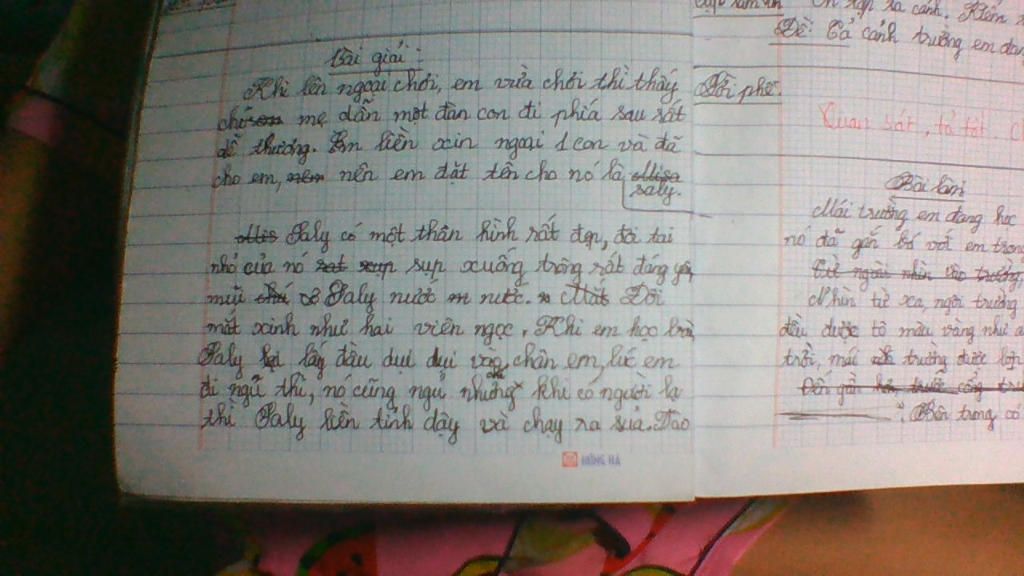 Bài giải:
Khi lên ngoại chơi, em vừa chơi thì thấy
chó mẹ dẫn một đàn con đi phía sau rất
dễ thương. Em liền xin ngoại 1 con và đã
cho em, nên em đặt tên cho nó là
saly.
Saly có một thân hình rất đẹp, đôi tai
nhỏ của nó sụp xuống trông rất đáng yêu,
mũi Saly nước nước. Đôi
mắt xinh như hai viên ngọc. Khi em học bài,
Saly lấy đầu dụi dụi vào chân em, lúc em
đi ngủ thì, nó cũng ngủ nhưng khi có người lạ
thì Saly liền tỉnh dậy và chạy ra sủa. Đào
HỒNG HÀ
Tập làm văn Ôn tập tả cảnh. Kiểm
Đề: Tả cảnh trường em đang
Lời phê.
Quan sát, tả tốt.
Bài làm
Mái trường em đang học
nó đã gắn bó với em trong
Nhìn từ xa, ngôi trường
đều được tô màu vàng như a
trời, mái trường được lợp
Bên trong có